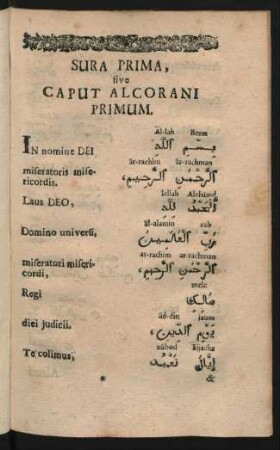 SURA PRIMA,
sive
CAPUT ALCORANI
PRIMUM.
Al-lah Besm
IN nomine DEI بِسْمِ اللّٰه
ár-rachim ár-rachman
miseratoris mise-
ricordis. الرَّحْمٰنِ الرَّحِيمِ،
lellah Alchamd
Laus DEO, أَلْحَمْدُ لِلّٰه
ál-alamin rab
Domino universi, رَبِّ الْعَالَمِينَ
ar-rachim ar-rachman
miseratori miseri-
cordi, الرَّحْمٰنِ الرَّحِيمِ،
melc
Regi مَالِكِ
úd-din jaúmi
diei judicii. يَوْمِ الدِّينِ،
núbod Eijacha
Te colimus, إِيَّاكَ نَعْبُدُ
&